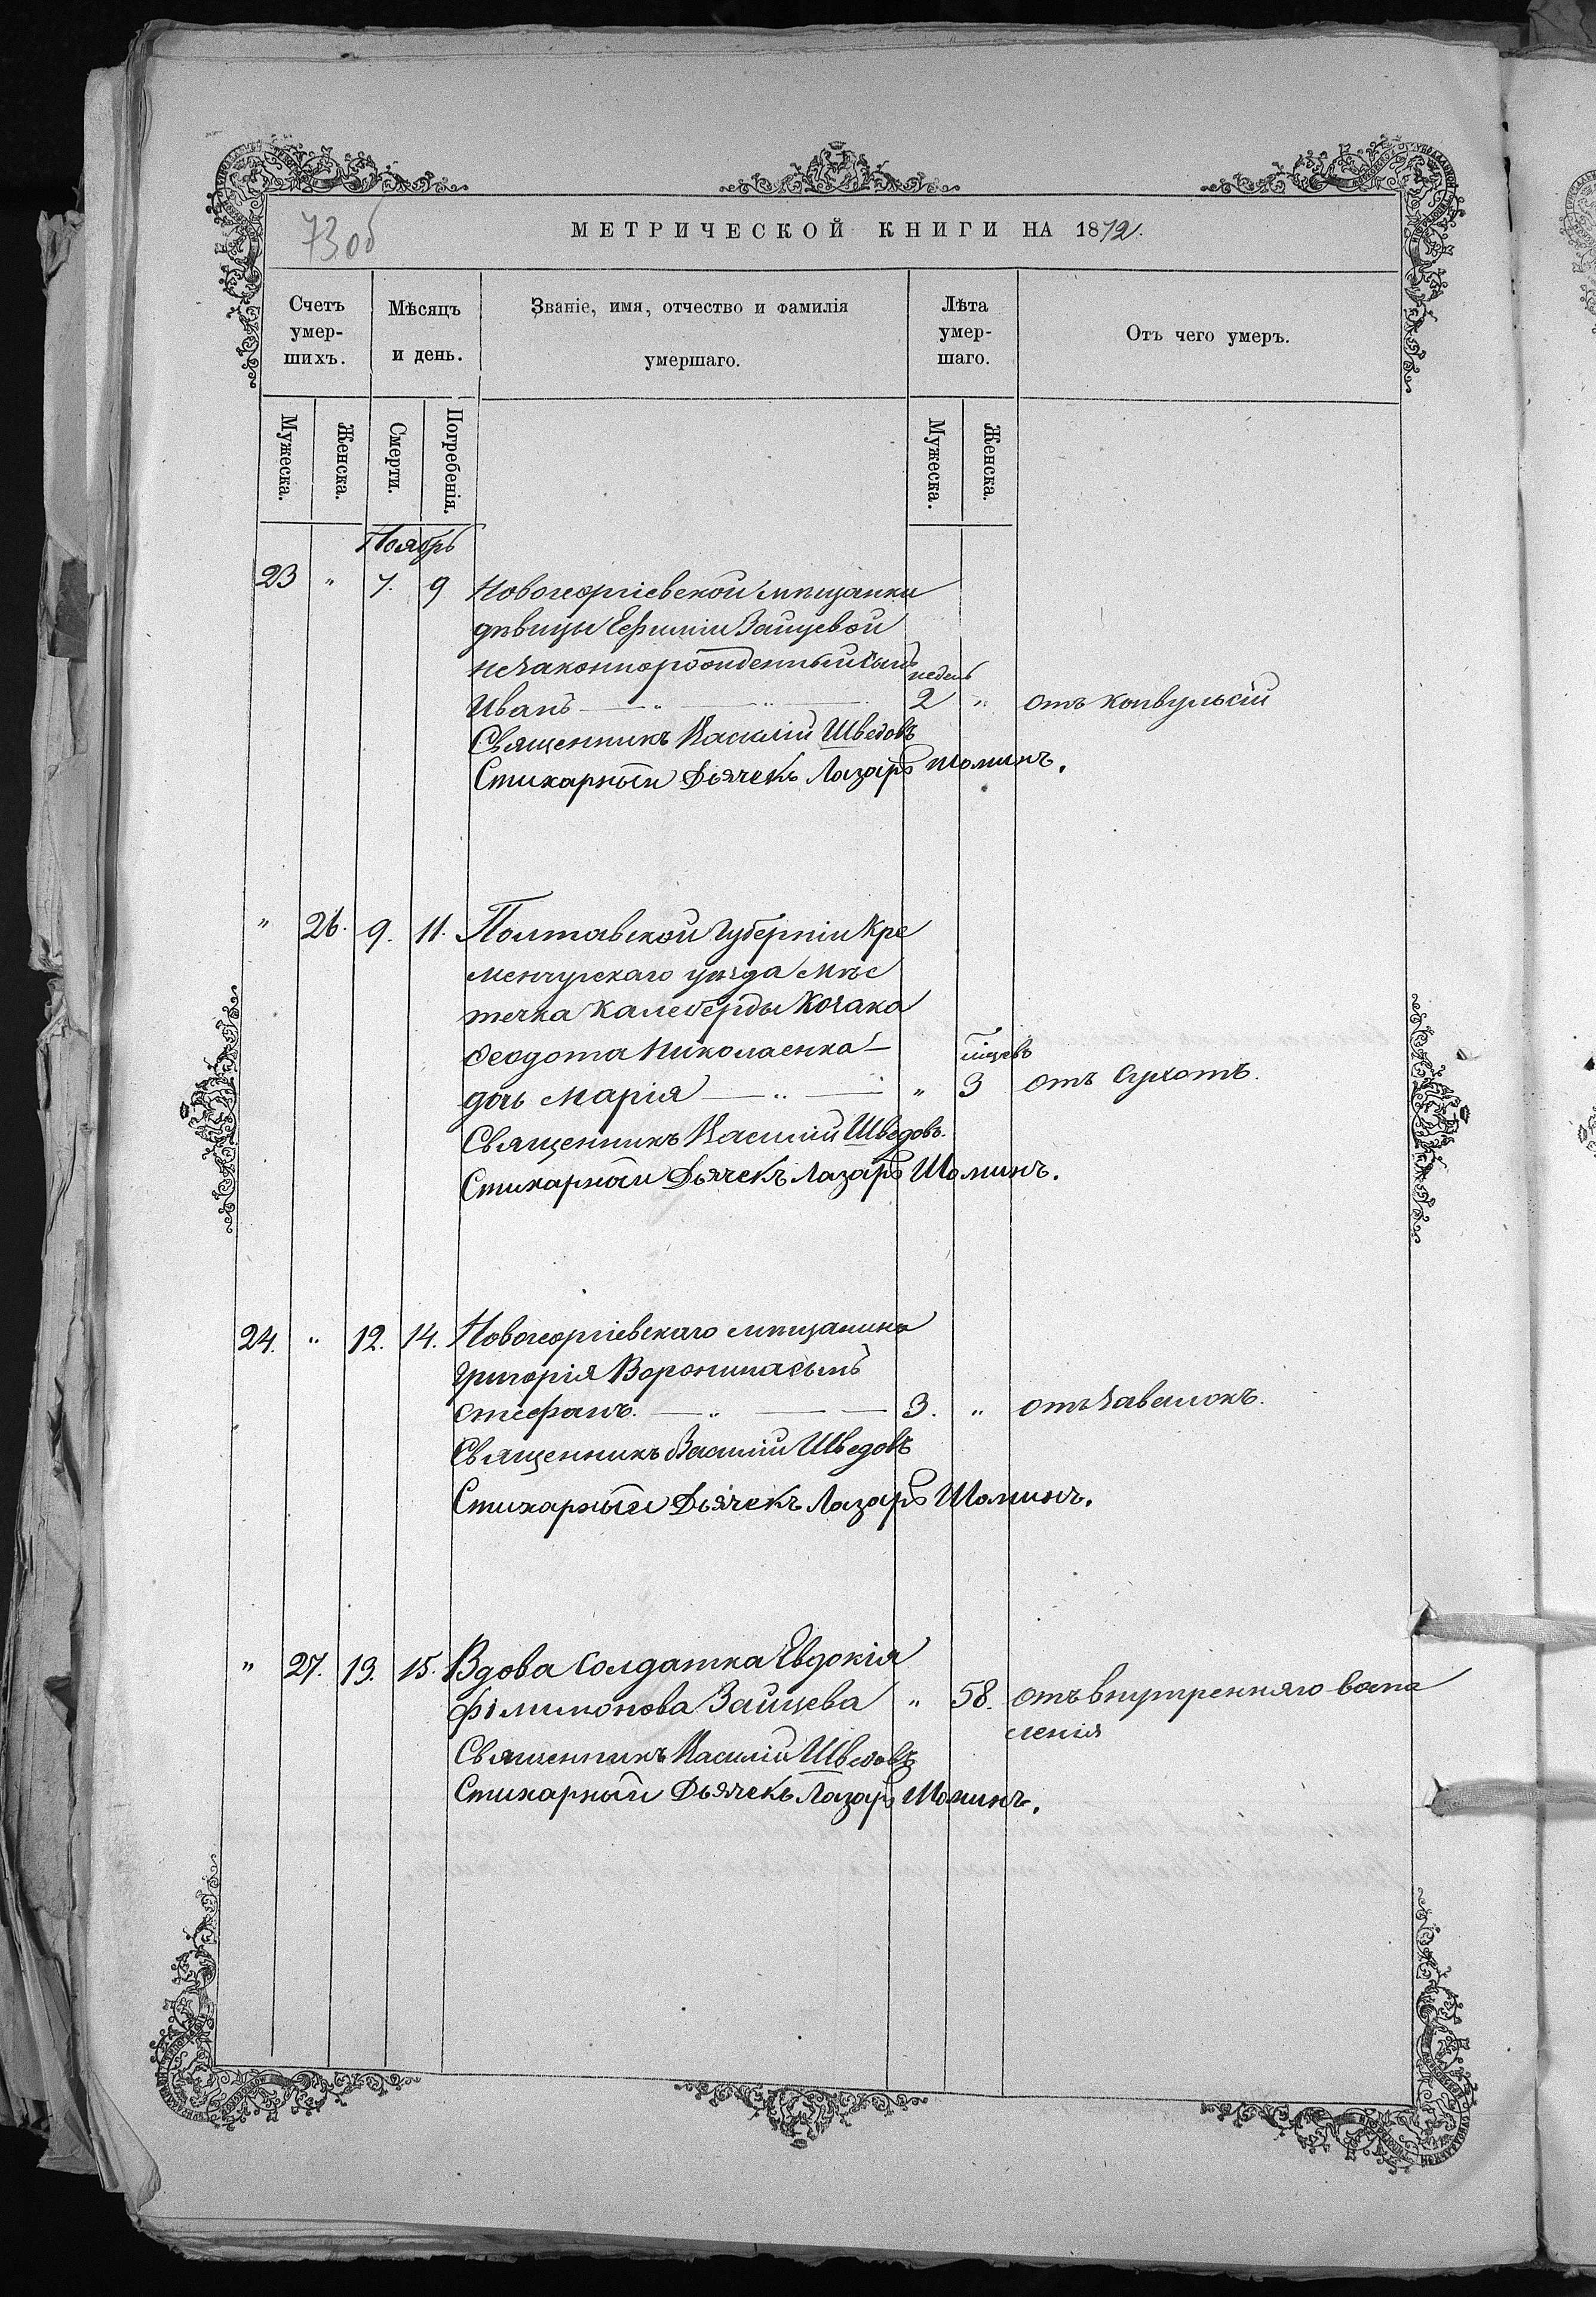 73об
МЕТРИЧЕСКОЙ КНИГИ НА 1872.
Счетъ умер-шихъ.
Мѣсяцъ и день.
Званіе, имя, отчество и фамилія умершаго.
Лѣта умер-шаго.
Отъ чего умеръ.
Мужеска. Женска. Смерти. Погребенія. Мужеска. Женска.
Ноябрь
23 " 7. 9 Новогеоргіевской мѣщанки
дѣвицы Ефиміи Зайцевой
незаконнорожденный сынъ недель
Иванъ — " — " — 2 " отъ конвульсій
Священникъ Василій Шведовъ
Стихарный Дьячекъ Лазарь Шоминъ.
" 26. 9. 11. Полтавской губерніи Кре
менчугскаго уѣзда мѣс
течка Калеберды Козака
Феодота Николаенка — мѣсяцевъ
дочь Марія — " — " 3 отъ сухотъ.
Священникъ Василій Шведовъ.
Стихарный Дьячекъ Лазарь Шоминъ.
24. " 12. 14. Новогеоргіевскаго мѣщанина
Григорія Воронина сынъ
Стефанъ. — " — — 3. " отъ завалокъ.
Священникъ Василій Шведовъ
Стихарный Дьячекъ Лазарь Шоминъ.
" 27. 13. 15. Вдова солдатка Евдокія
Филимонова Зайцева " 58. отъ внутренняго воспа
ленія
Священникъ Василій Шведовъ
Стихарный Дьячекъ Лазарь Шоминъ.